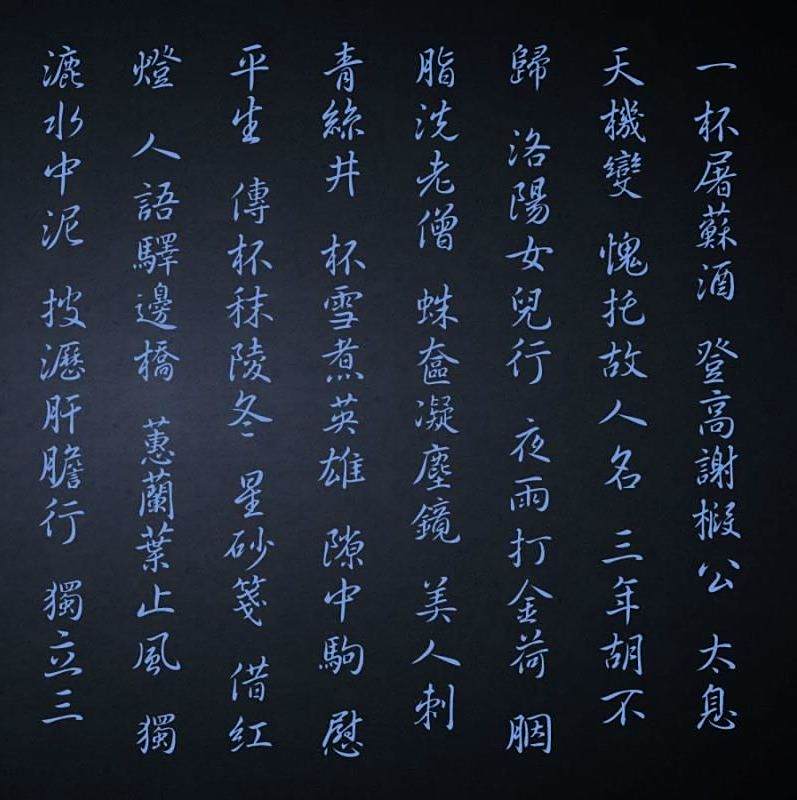 一杯屠蘇酒 登高謝椵公 太息
天機變 愧托故人名 三年胡不
歸 洛陽女兒行 夜雨打金荷 胭
脂洗老僧 蛛奩凝塵鏡 美人刺
青絲井 杯雪煮英雄 隙中駒 慰
平生 傳杯秣陵冬 星砂箋 借紅
燈 人語驛邊橋 蕙蘭葉止風 獨
漉水中泥 披瀝肝膽行 獨立三